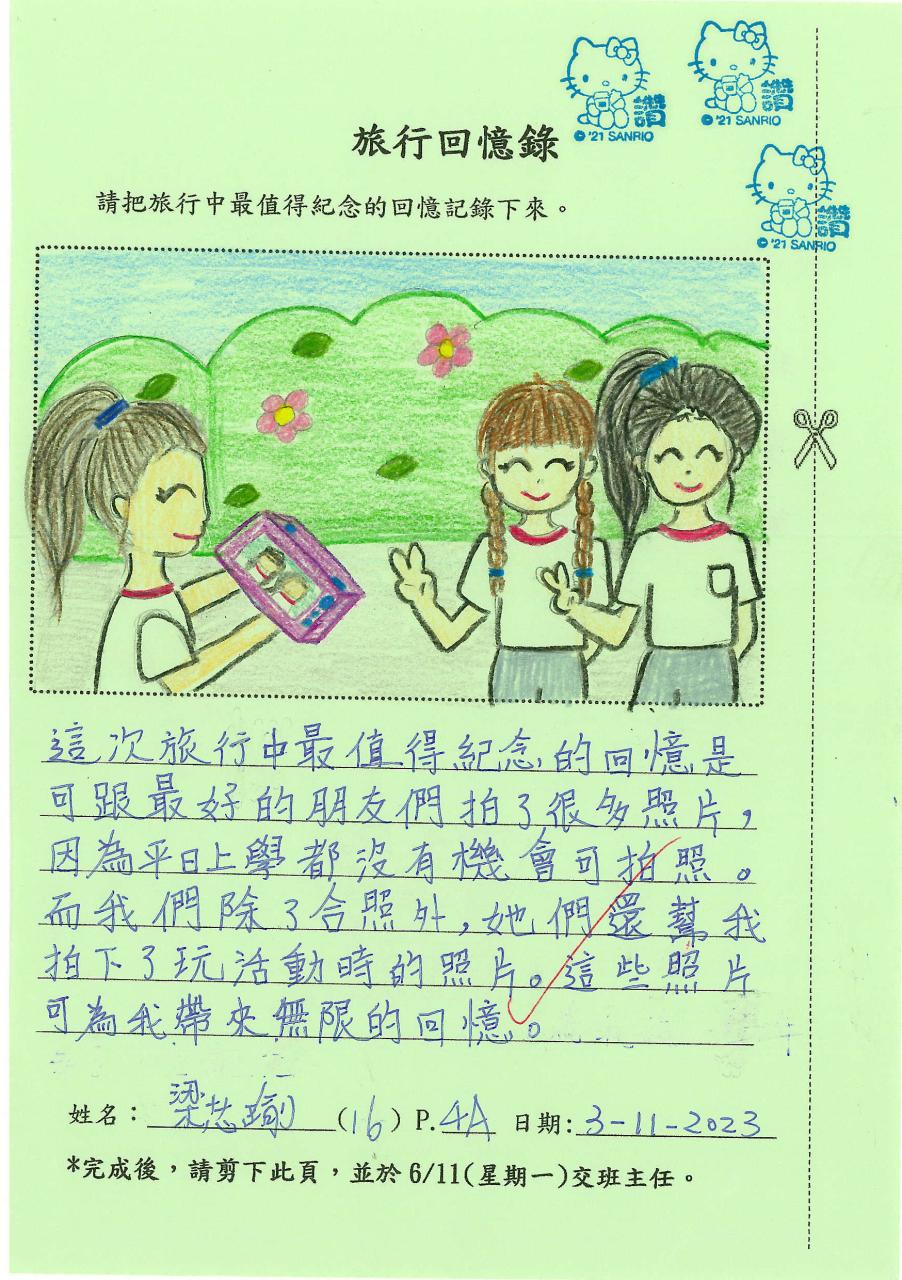 讚
© '21 SANRIO
讚
© '21 SANRIO
讚
© '21 SANRIO
旅行回憶錄
請把旅行中最值得紀念的回憶記錄下來。
這次旅行中最值得紀念的回憶是
可跟最好的朋友們拍了很多照片，
因為平日上學都沒有機會可拍照。
而我們除了合照外，她們還幫我
拍下了玩活動時的照片。這些照片
可為我帶來無限的回憶。
姓名： 梁芯瑜 (16) P.4A 日期: 3-11-2023
*完成後，請剪下此頁，並於 6/11(星期一)交班主任。